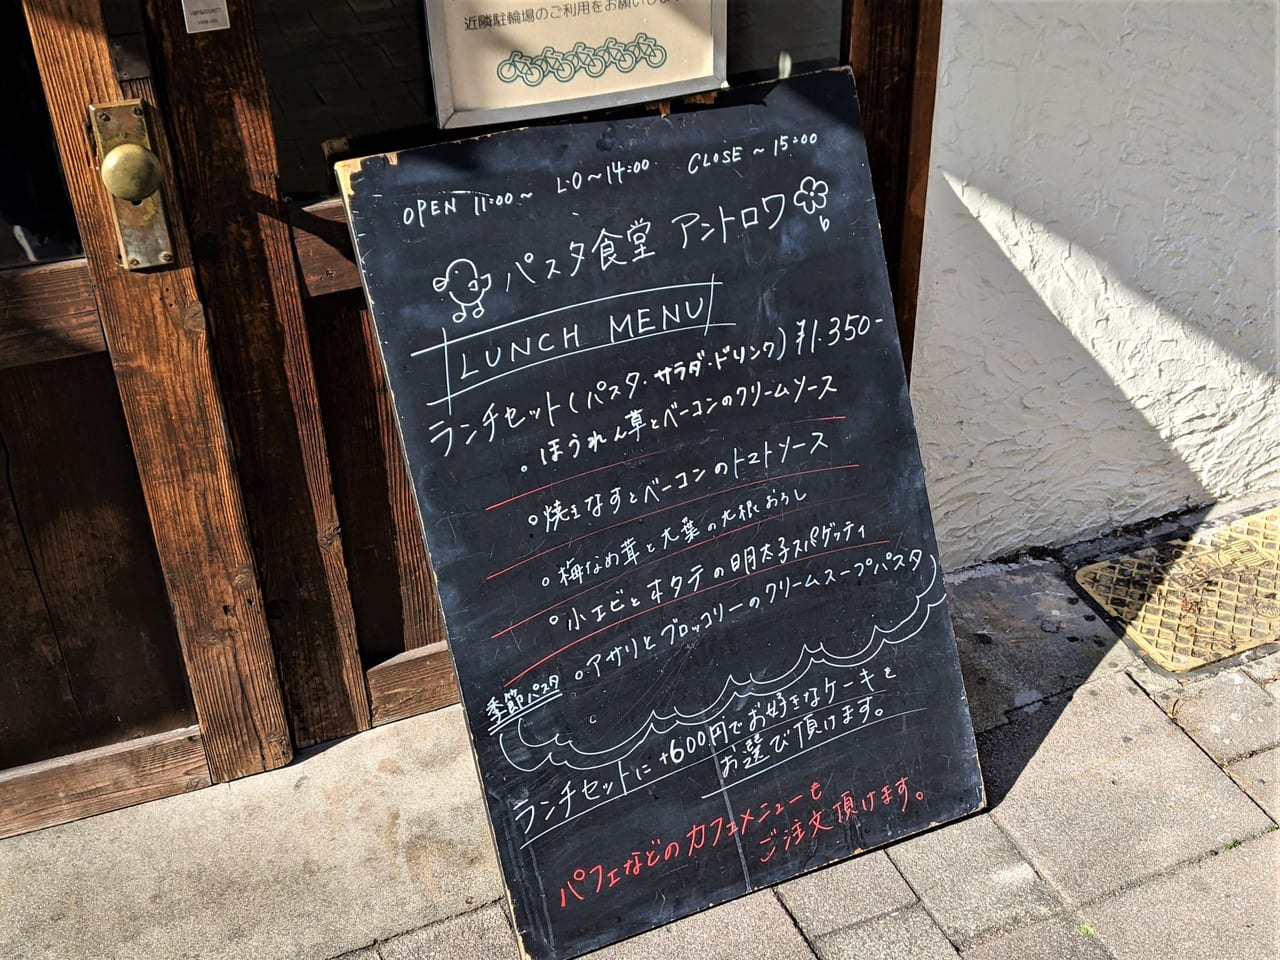 近隣駐輪場のご利用をお願いします
OPEN 11:00～ L.O～14:00 CLOSE～15:00
パスタ食堂 アントロワ
LUNCH MENU
ランチセット(パスタ・サラダ・ドリンク)¥1.350-
。ほうれん草とベーコンのクリームソース
。焼きなすとベーコンのトマトソース
。梅なめ茸と大葉の大根おろし
。小エビとホタテの明太子スパゲッティ
季節パスタ 。アサリとブロッコリーのクリームスープパスタ
ランチセットに+600円でお好きなケーキを
お選び頂けます。
パフェなどのカフェメニューも
ご注文頂けます。